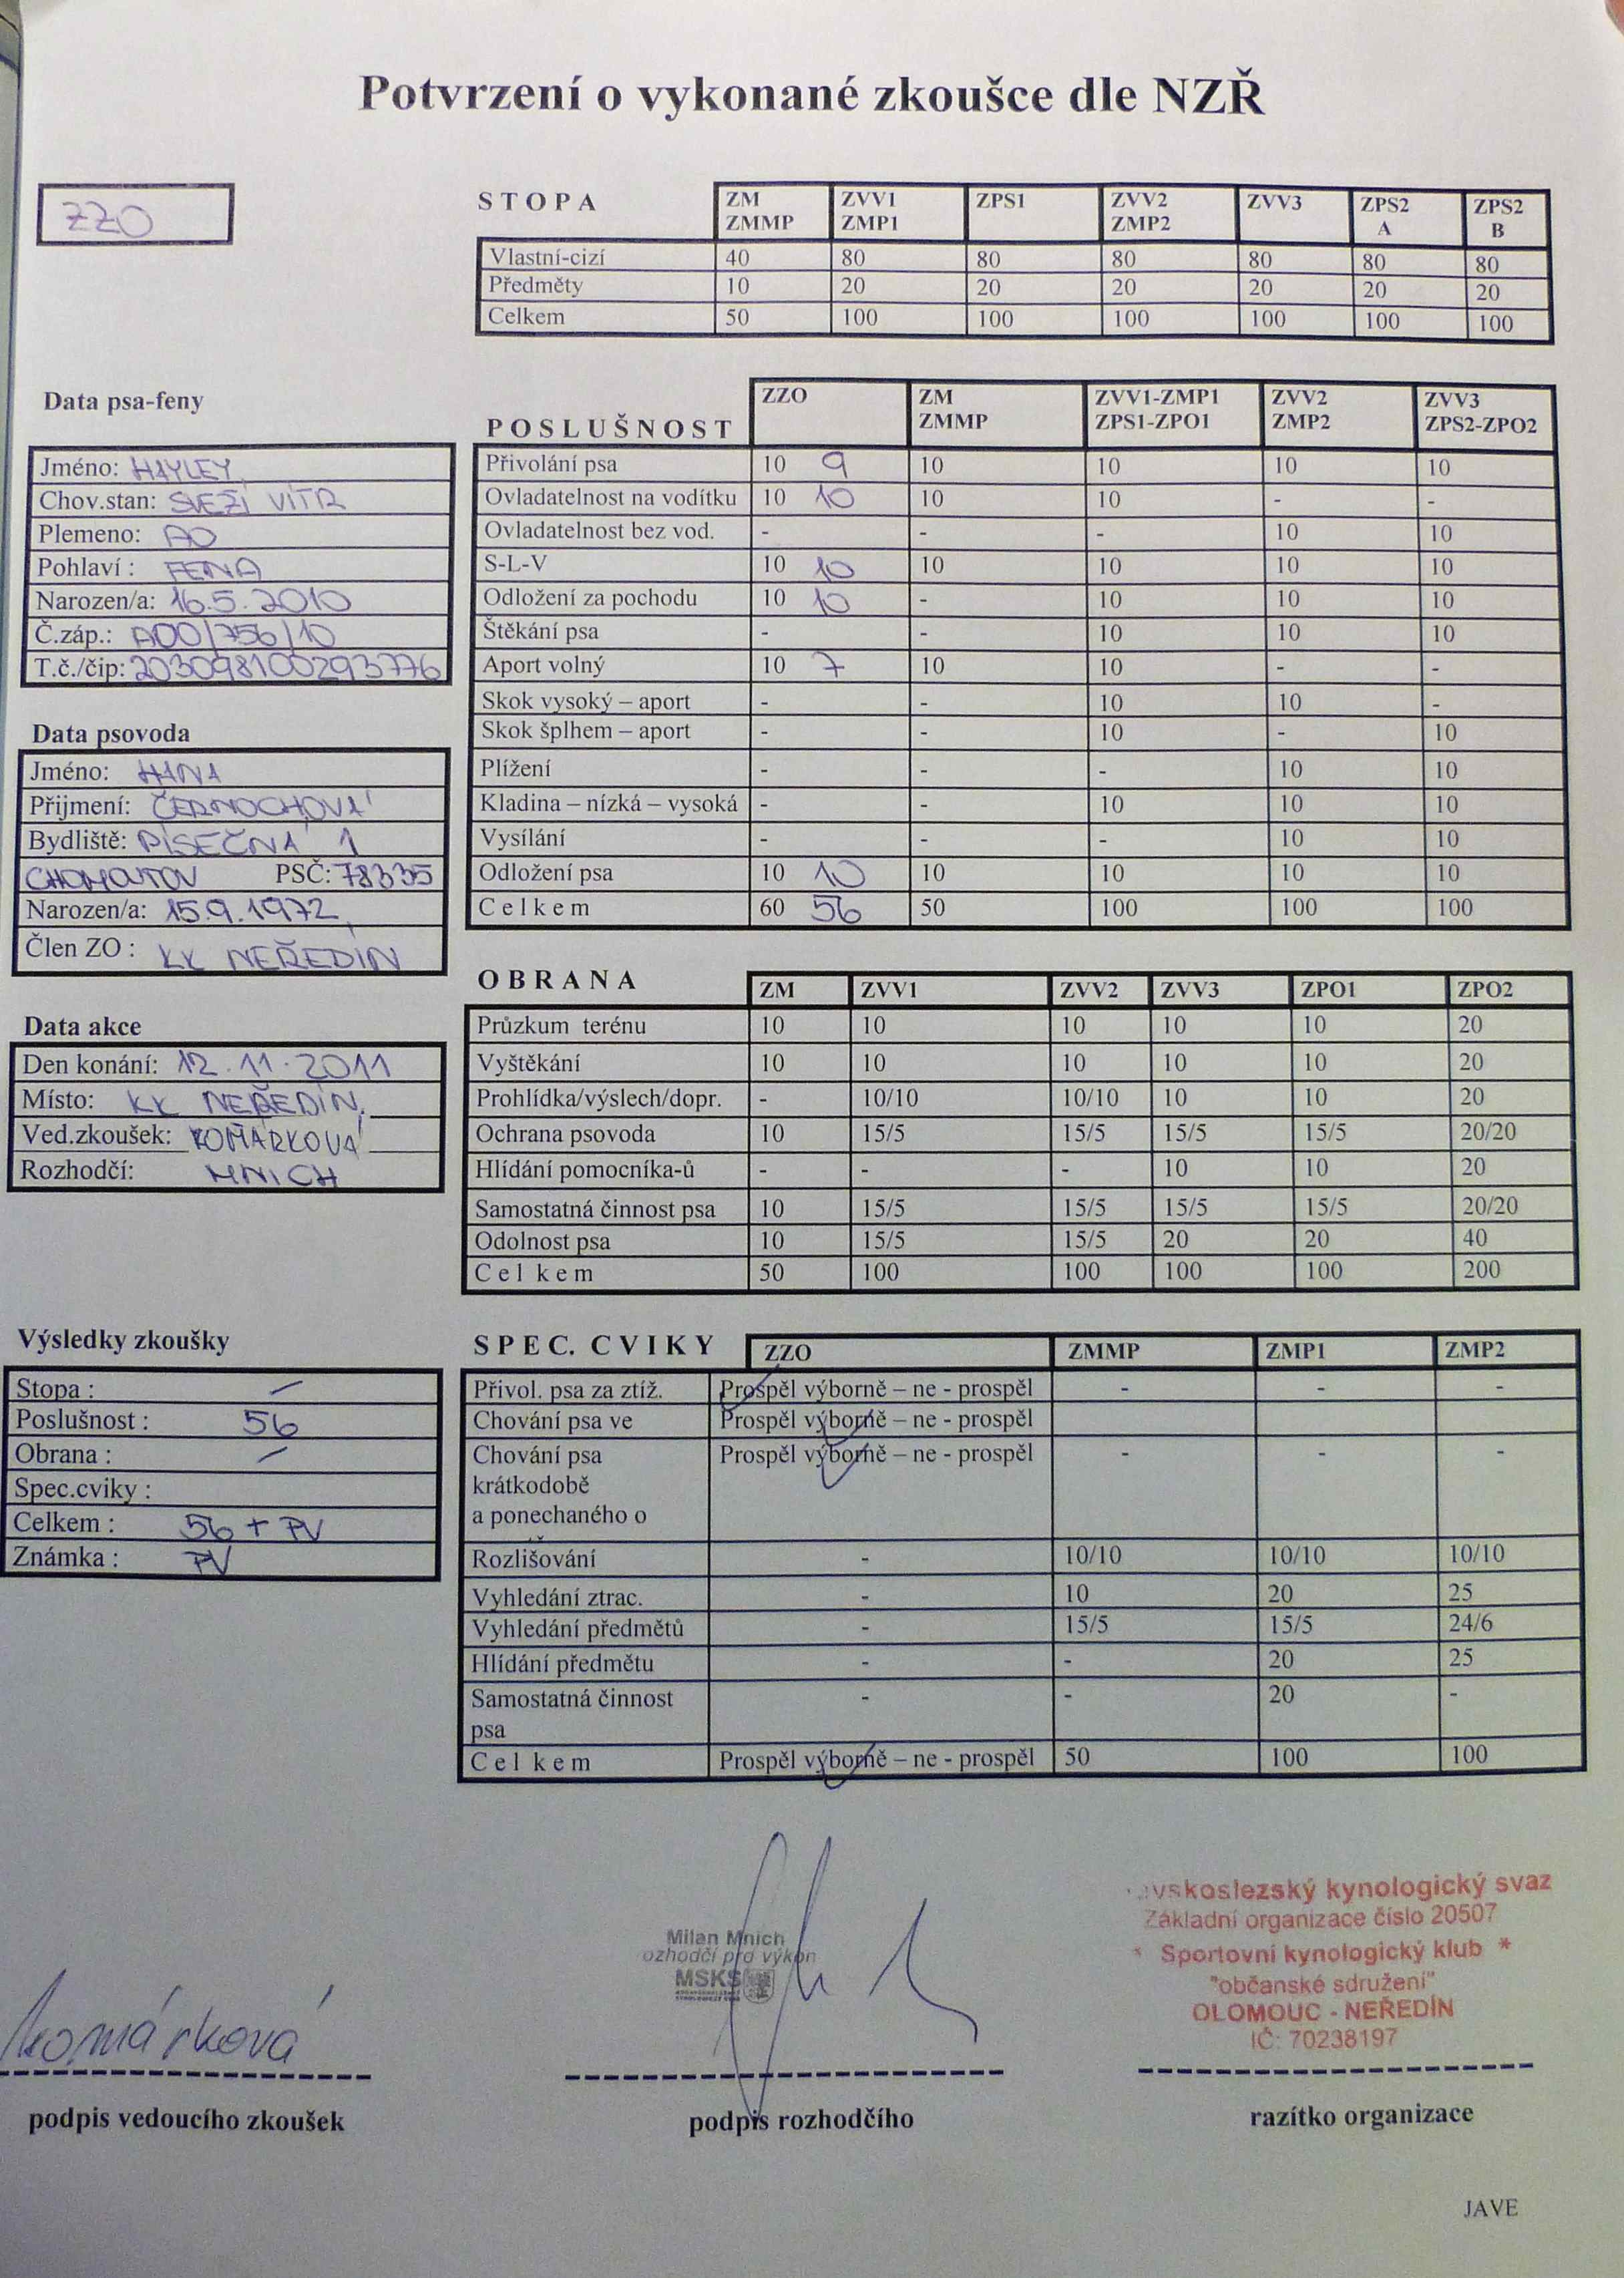 Potvrzení o vykonané zkoušce dle NZŘ
ZZO
STOPA ZM ZMMP ZVV1 ZMP1 ZPS1 ZVV2 ZMP2 ZVV3 ZPS2 A ZPS2 B
Vlastní-cizí 40 80 80 80 80 80 80
Předměty 10 20 20 20 20 20 20
Celkem 50 100 100 100 100 100 100
Data psa-feny
Jméno: HAYLEY
Chov.stan: SVEŽÍ VÍTR
Plemeno: AO
Pohlaví : FENA
Narozen/a: 16.5.2010
Č.záp.: AOO/756/10
T.č./čip: 203098100293776
Data psovoda
Jméno: HANA
Přijmení: ČERNOCHOVÁ
Bydliště: PÍSEČNÁ 1
CHOMOUTOV PSČ: 78335
Narozen/a: 15.9.1972
Člen ZO : KK NEŘEDÍN
Data akce
Den konání: 12.11.2011
Místo: KK NEŘEDÍN
Ved.zkoušek: KOMÁRKOVÁ
Rozhodčí: MNICH
Výsledky zkoušky
Stopa : –
Poslušnost : 56
Obrana : –
Spec.cviky :
Celkem : 56 + PV
Známka : PV
POSLUŠNOST ZZO ZM ZMMP ZVV1-ZMP1 ZPS1-ZPO1 ZVV2 ZMP2 ZVV3 ZPS2-ZPO2
Přivolání psa 10 9 10 10 10 10
Ovladatelnost na vodítku 10 10 10 10 - -
Ovladatelnost bez vod. - - - 10 10
S-L-V 10 10 10 10 10 10
Odložení za pochodu 10 10 - 10 10 10
Štěkání psa - - 10 10 10
Aport volný 10 7 10 10 - -
Skok vysoký – aport - - 10 10 -
Skok šplhem – aport - - 10 - 10
Plížení - - - 10 10
Kladina – nízká – vysoká - - 10 10 10
Vysílání - - - 10 10
Odložení psa 10 10 10 10 10 10
Celkem 60 56 50 100 100 100
OBRANA ZM ZVV1 ZVV2 ZVV3 ZPO1 ZPO2
Průzkum terénu 10 10 10 10 10 20
Vyštěkání 10 10 10 10 10 20
Prohlídka/výslech/dopr. - 10/10 10/10 10 10 20
Ochrana psovoda 10 15/5 15/5 15/5 15/5 20/20
Hlídání pomocníka-ů - - - 10 10 20
Samostatná činnost psa 10 15/5 15/5 15/5 15/5 20/20
Odolnost psa 10 15/5 15/5 20 20 40
Celkem 50 100 100 100 100 200
SPEC. CVIKY ZZO ZMMP ZMP1 ZMP2
Přivol. psa za ztíž. Prospěl výborně – ne - prospěl - - -
Chování psa ve Prospěl výborně – ne - prospěl
Chování psa Prospěl výborně – ne - prospěl - - -
krátkodobě
a ponechaného o
Rozlišování - 10/10 10/10 10/10
Vyhledání ztrac. - 10 20 25
Vyhledání předmětů - 15/5 15/5 24/6
Hlídání předmětu - - 20 25
Samostatná činnost - - 20 -
psa
Celkem Prospěl výborně – ne - prospěl 50 100 100
Komárková
podpis vedoucího zkoušek
Milan Mnich
ozhodčí pro výkon
MSKS
podpis rozhodčího
vskoslezský kynologický svaz
Základní organizace číslo 20507
* Sportovní kynologický klub *
"občanské sdružení"
OLOMOUC - NEŘEDÍN
IČ: 70238197
razítko organizace
JAVE